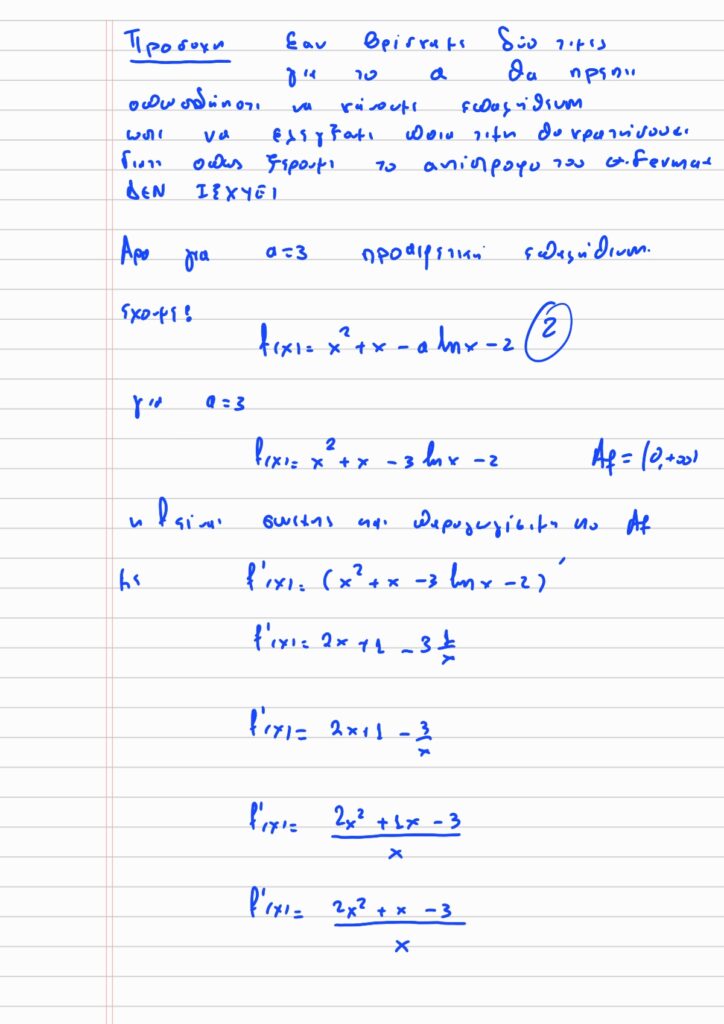 Προσοχη Εαν βρίσκατε δύο τιμες
για το α θα πρεπει
οπωσδήποτε να κάνουμε επαλήθευση
ωστε να ελεγξατε ποια τιμη θα κρατήσουμε
Γιατι οπως ξερουμε το αντίστροφο του Θ. Fermat
ΔΕΝ ΙΣΧΥΕΙ
Αρα για α=3 προαιρετική επαλήθευση.
εχουμε:
f(x) = x² + x - α ln x - 2 (2)
για α=3
f(x) = x² + x - 3 ln x - 2 Af = (0,+∞)
η f είναι συνεχης και παραγωγίσιμη στο Af
με f'(x) = (x² + x - 3 ln x - 2)'
f'(x) = 2x + 1 - 3 1/x
f'(x) = 2x + 1 - 3/x
f'(x) = 2x² + 1x - 3 / x
f'(x) = 2x² + x - 3 / x